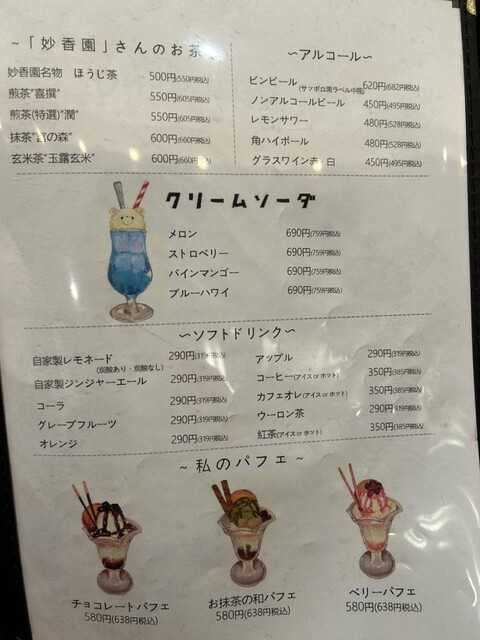 ~「妙香園」さんのお茶~
妙香園名物 ほうじ茶 500円(550円税込)
煎茶"喜撰" 550円(605円税込)
煎茶(特選)"潤" 550円(605円税込)
抹茶"宮の森" 600円(660円税込)
玄米茶"玉露玄米" 600円(660円税込)
~アルコール~
ビンビール 620円(682円税込)
(サッポロ黒ラベル中瓶)
ノンアルコールビール 450円(495円税込)
レモンサワー 480円(528円税込)
角ハイボール 480円(528円税込)
グラスワイン赤・白 450円(495円税込)
クリームソーダ
メロン 690円(759円税込)
ストロベリー 690円(759円税込)
パインマンゴー 690円(759円税込)
ブルーハワイ 690円(759円税込)
~ソフトドリンク~
自家製レモネード 290円(319円税込)
(炭酸あり・炭酸なし)
自家製ジンジャーエール 290円(319円税込)
コーラ 290円(319円税込)
グレープフルーツ 290円(319円税込)
オレンジ 290円(319円税込)
アップル 290円(319円税込)
コーヒー(アイス or ホット) 350円(385円税込)
カフェオレ(アイス or ホット) 350円(385円税込)
ウーロン茶 290円(319円税込)
紅茶(アイス or ホット) 350円(385円税込)
~ 私のパフェ ~
チョコレートパフェ
580円(638円税込)
お抹茶の和パフェ
580円(638円税込)
ベリーパフェ
580円(638円税込)